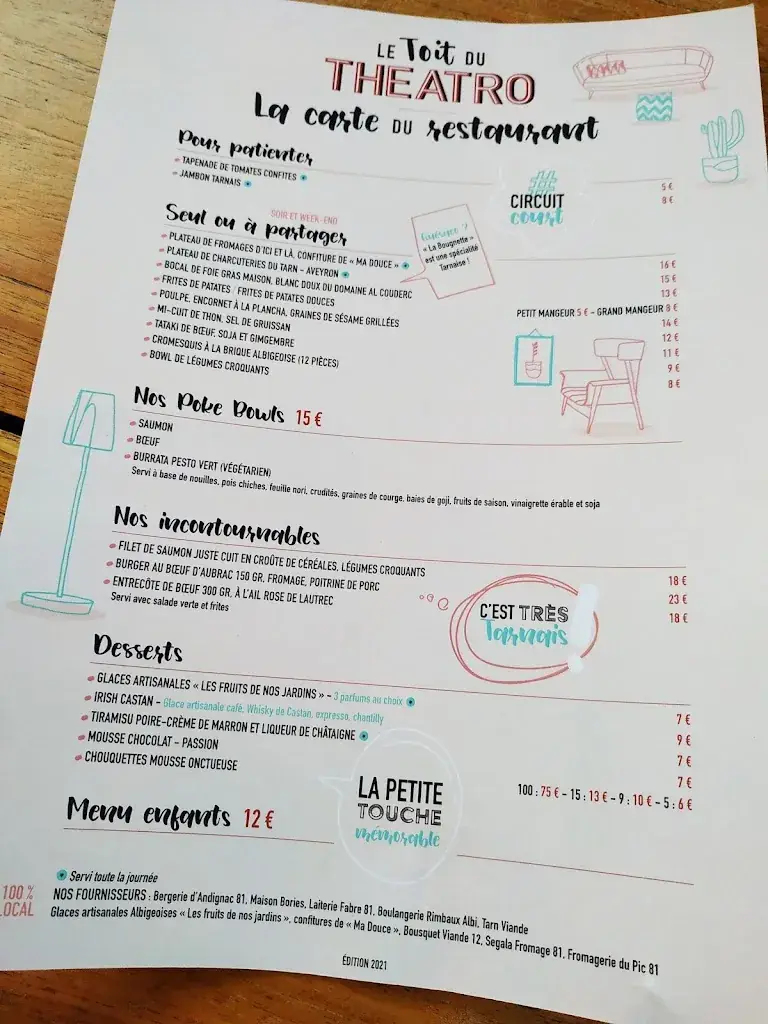 LE Toit DU
THEATRO
La carte DU restaurant
Pour patienter
TAPENADE DE TOMATES CONFITES 5 €
JAMBON TARNAIS 8 €
# CIRCUIT
court
Seul ou à partager SOIR ET WEEK-END
PLATEAU DE FROMAGES D'ICI ET LÀ, CONFITURE DE « MA DOUCE » 16 €
PLATEAU DE CHARCUTERIES DU TARN - AVEYRON 15 €
BOCAL DE FOIE GRAS MAISON, BLANC DOUX DU DOMAINE AL COUDERC 13 €
FRITES DE PATATES / FRITES DE PATATES DOUCES PETIT MANGEUR 5 € - GRAND MANGEUR 8 €
POULPE, ENCORNET À LA PLANCHA, GRAINES DE SÉSAME GRILLÉES 14 €
MI-CUIT DE THON, SEL DE GRUISSAN 12 €
TATAKI DE BŒUF, SOJA ET GIMGEMBRE 11 €
CROMESQUIS À LA BRIQUE ALBIGEOISE (12 PIÈCES) 9 €
BOWL DE LÉGUMES CROQUANTS 8 €
« La Bougnette »
est une spécialité
Tarnaise !
Nos Poke Bowls 15 €
SAUMON
BŒUF
BURRATA PESTO VERT (VÉGÉTARIEN)
Servi à base de nouilles, pois chiches, feuille nori, crudités, graines de courge, baies de goji, fruits de saison, vinaigrette érable et soja
Nos incontournables
FILET DE SAUMON JUSTE CUIT EN CROÛTE DE CÉRÉALES, LÉGUMES CROQUANTS 18 €
BURGER AU BŒUF D'AUBRAC 150 GR, FROMAGE, POITRINE DE PORC 23 €
ENTRECÔTE DE BŒUF 300 GR, À L'AIL ROSE DE LAUTREC 18 €
Servi avec salade verte et frites
C'EST TRÈS
Tarnais !
Desserts
GLACES ARTISANALES « LES FRUITS DE NOS JARDINS » - 3 parfums au choix 7 €
IRISH CASTAN - Glace artisanale café, Whisky de Castan, expresso, chantilly 9 €
TIRAMISU POIRE-CRÈME DE MARRON ET LIQUEUR DE CHÂTAIGNE 7 €
MOUSSE CHOCOLAT - PASSION 7 €
CHOUQUETTES MOUSSE ONCTUEUSE 100 : 75 € - 15 : 13 € - 9 : 10 € - 5 : 6 €
LA PETITE
TOUCHE
mémorable
Menu enfants 12 €
Servi toute la journée
100 %
LOCAL
NOS FOURNISSEURS : Bergerie d'Andignac 81, Maison Bories, Laiterie Fabre 81, Boulangerie Rimbaux Albi, Tarn Viande
Glaces artisanales Albigeoises « Les fruits de nos jardins », confitures de « Ma Douce », Bousquet Viande 12, Segala Fromage 81, Fromagerie du Pic 81
ÉDITION 2021